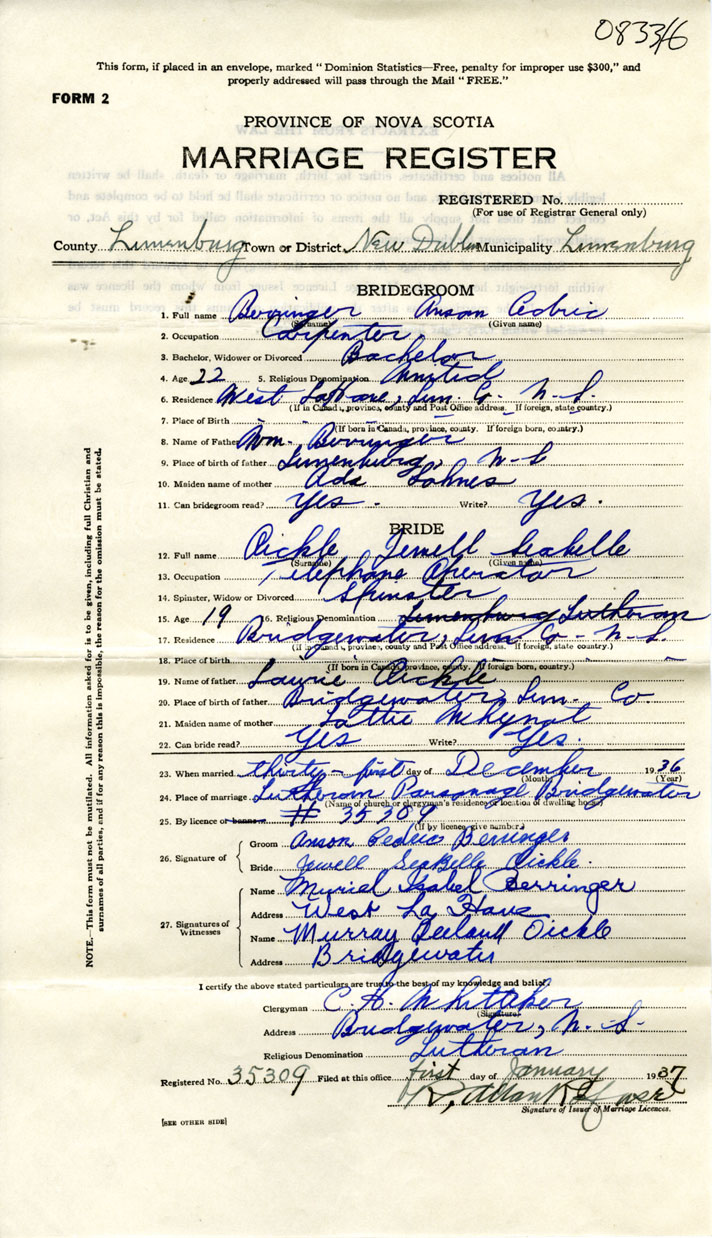 083316
This form, if placed in an envelope, marked "Dominion Statistics—Free, penalty for improper use $300," and
properly addressed will pass through the Mail "FREE."
FORM 2
PROVINCE OF NOVA SCOTIA
MARRIAGE REGISTER
REGISTERED No.
(For use of Registrar General only)
County Lunenburg Town or District New Dublin Municipality Lunenburg
BRIDEGROOM
1. Full name Berringer Anson Cedric
(Surname) (Given name)
2. Occupation Carpenter
3. Bachelor, Widower or Divorced Bachelor
4. Age 22 5. Religious Denomination United
6. Residence West LaHave, Lun. Co. N-S.
(If in Canada, province, county and Post Office address. If foreign, state country.)
7. Place of Birth
(If born in Canada, province, county. If foreign born, country.)
8. Name of Father Wm. Berringer
9. Place of birth of father Lunenburg, N-S
10. Maiden name of mother Ada Lohnes
11. Can bridegroom read? Yes - Write? Yes.
BRIDE
12. Full name Oickle Jewell Seabelle
(Surname) (Given name)
13. Occupation Telephone Operator
14. Spinster, Widow or Divorced Spinster
15. Age 19 16. Religious Denomination Lunenburg Lutheran
17. Residence Bridgewater, Lun. Co- N-S
(If in Canada, province, county and Post Office address. If foreign, state country.)
18. Place of birth
(If born in Canada, province, county. If foreign born, country.)
19. Name of father. Laurie Oickle
20. Place of birth of father Bridgewater, Lun. Co.
21. Maiden name of mother Lottie
22. Can bride read? Yes Write? Yes.
23. When married thirty-first day of December 1936
(Month) (Year)
24. Place of marriage Lutheran Parsonage Bridgewater
(Name of church or clergyman's residence or location of dwelling house)
25. By licence or banns # 35309
(If by licence, give number.)
26. Signature of
Groom Anson Cedric Berringer
Bride Jewell SeaBelle Oickle.
27. Signatures of Witnesses
Name Muriel Isabel Berringer
Address West La Have
Name Murray Oickle
Address Bridgewater
I certify the above stated particulars are true to the best of my knowledge and belief.
Clergyman C. H. Whittaker
(Signature)
Address Bridgewater, N. S.
Religious Denomination Lutheran
Registered No. 35309 Filed at this office first day of January 1937
Signature of Issuer of Marriage Licences.
[SEE OTHER SIDE]
NOTE.—This form must not be mutilated. All information asked for is to be given, including full Christian and
surnames of all parties, and if for any reason this is impossible, the reason for the omission must be stated.